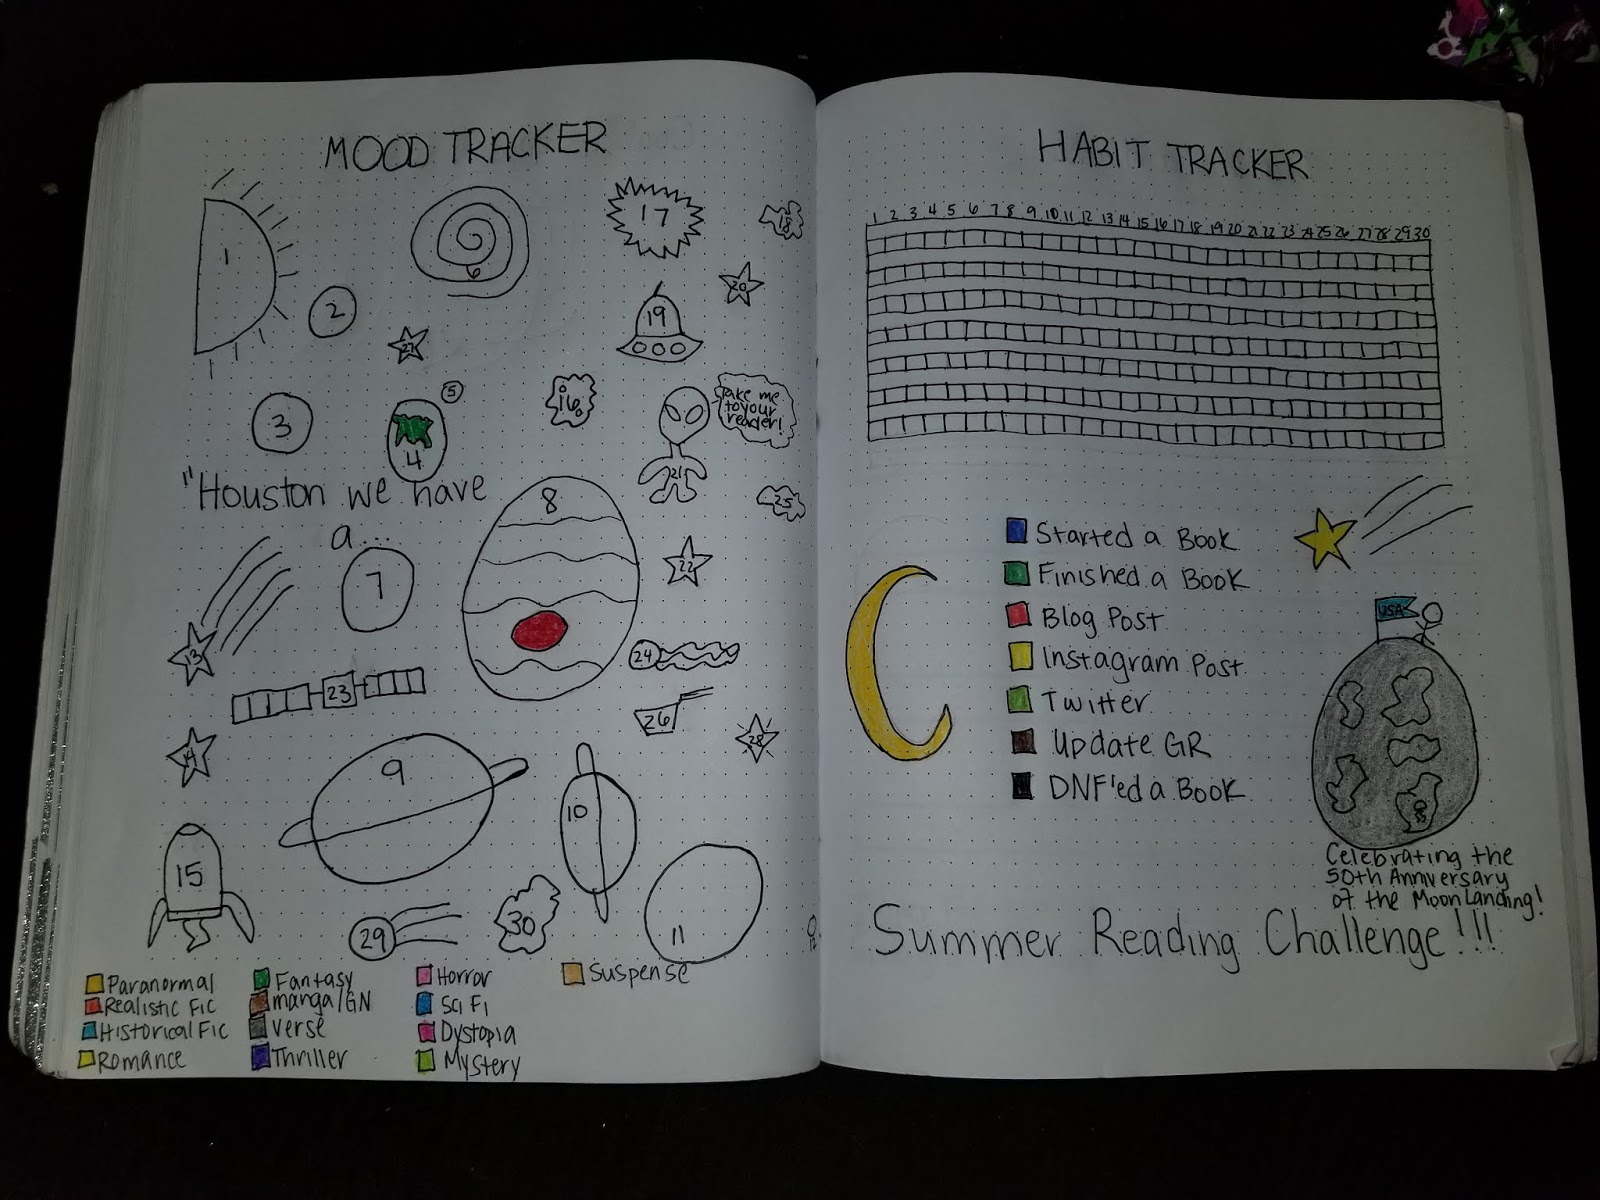 MOOD TRACKER
1
6
17
18
2
27
19
20
3
5
4
16
Take me
to your
reader!
21
25
"Houston we have
a...
7
8
22
13
23
24
26
14
28
9
10
15
29
30
11
12
Paranormal
Realistic Fic
Historical Fic
Romance
Fantasy
manga/GN
Verse
Thriller
Horror
Sci Fi
Dystopia
Mystery
Suspense
HABIT TRACKER
1 2 3 4 5 6 7 8 9 10 11 12 13 14 15 16 17 18 19 20 21 22 23 24 25 26 27 28 29 30
Started a Book
Finished a Book
Blog Post
Instagram Post
Twitter
Update GR
DNF'ed a Book
USA
Celebrating the
50th Anniversary
of the Moon Landing!
Summer Reading Challenge!!!